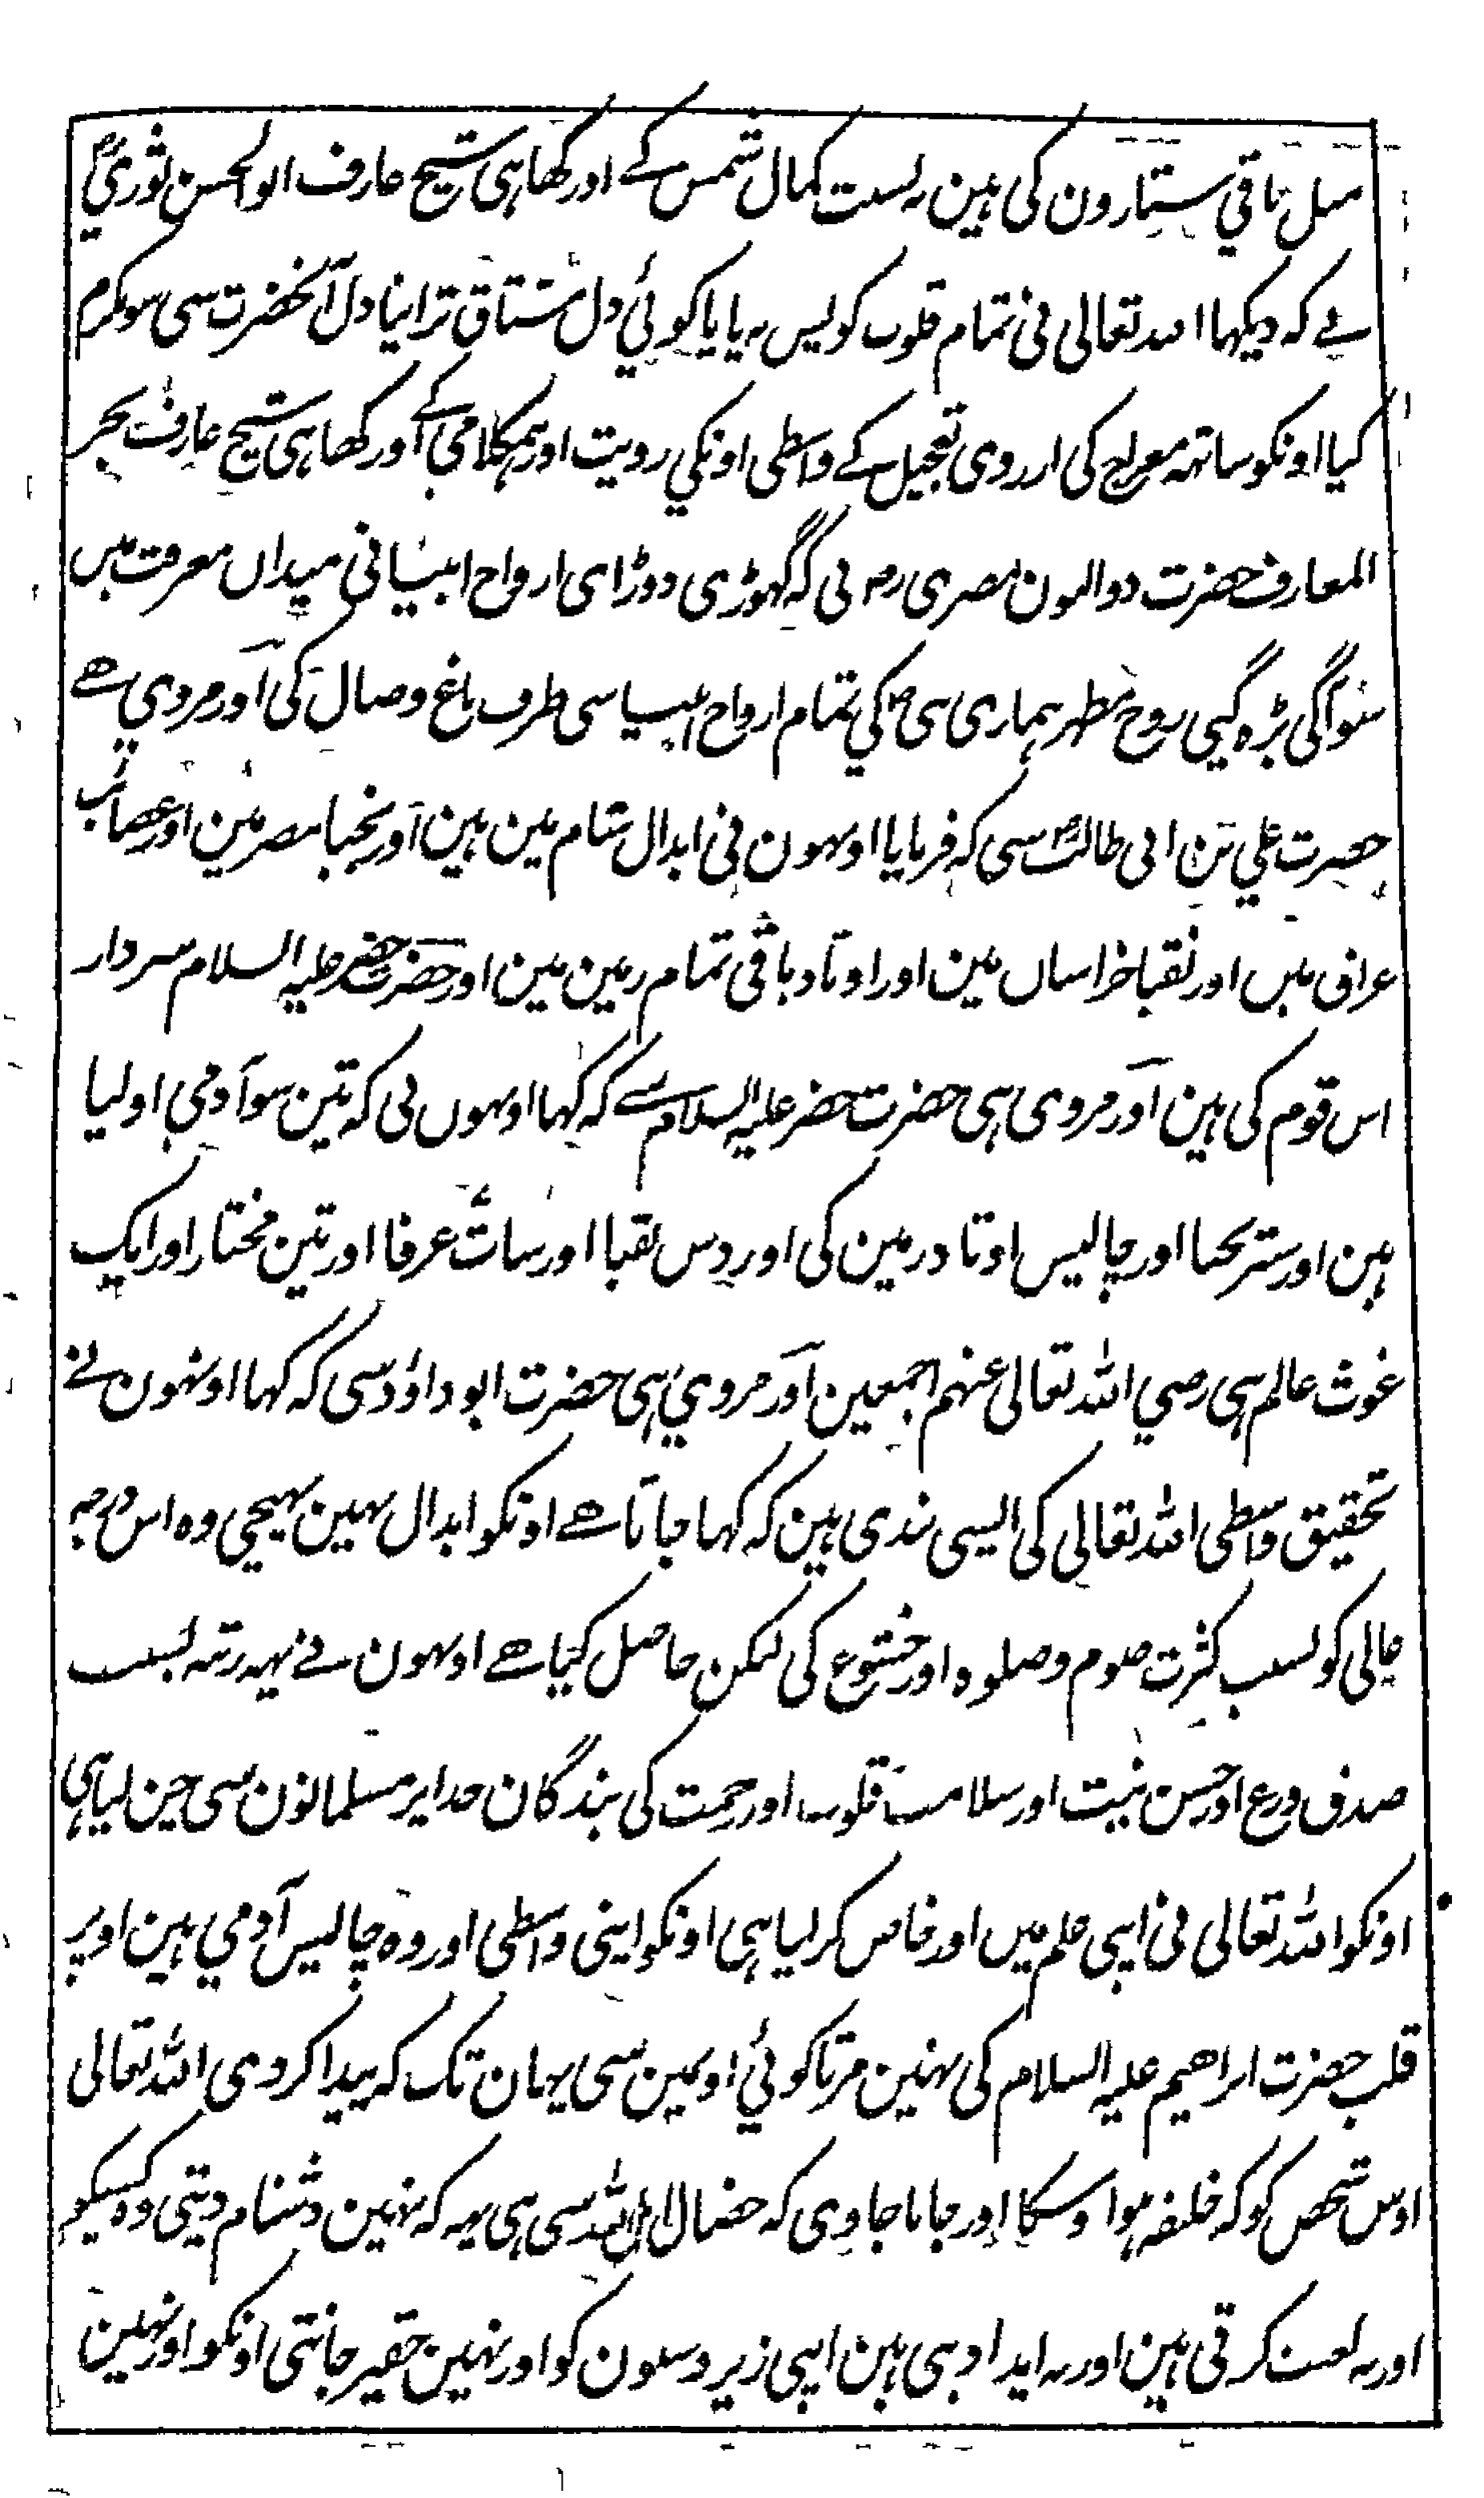 مثل باقی ستارون کی ہین بہ نسبت کمال شمس کے اور کہا ہی شیخ عارف ابو الحسن نوری
نے کہ دیکہا اللہ تعالی نی تمام قلوب کو پس نہ پایا کوئی دل مشتاق تر اپنا دل آنحضرت سی سو مکرم
کیا اونکو ساتہ معراج کی از روی تعجیل کے واسطی اونکی رویت اور ہمکلامی کے اور کہا ہی شیخ عارف بحر
المعارف حضرت ذوالنون مصری رہ نی کہ گہوڑی دوڑای ارواح انبیا نی میدان معرفت میں
سو آگی بڑہ گیی روح مطہر ہماری نبی ص کی تمام ارواح انبیا سی طرف باغ وصال کی آور مروی ہے
حضرت علی بن ابی طالب سی کہ فرمایا اونہون نی ابدال شام مین ہین اور نجبا مصر مین اور عصائب
عراق میں اور نقبا خراسان مین اور اوتاد باقی تمام زمین مین اور حضرت خضر علیہ السلام سردار
اس قوم کی ہین آور مروی ہی حضرت خضر علیہ السلام سے کہ کہا اونہوں نی کہ تین سو آدمی اولیا
ہین اور ستر نجبا اور چالیس اوتاد زمین کی اور دس نقبا اور سات عرفا اور تین مختار اور ایک
غوث عالم ہی رضی اللہ تعالی عنہم اجمعین آور مروی ہی حضرت ابو داؤد سی کہ کہا اونہون نے
تحقیق واسطی اللہ تعالی کی ایسی بندی ہین کہ کہا جاتا ہے اونکو ابدال نہین پہنچی وہ اس درجہ
عالی کو بسبب کثرت صوم و صلوہ اور خشوع کی لیکن حاصل کیا ہے اونہون نے یہہ رتبہ بسبب
صدق ورع اور حسن نیت اور سلامت قلوب اور رحمت کی بندگان خدا پر مسلمانون سی چن لیا ہی
اونکو اللہ تعالی نی اپنی علم میں اور خاص کر لیا ہی اونکو اپنی واسطی اور وہ چالیس آدمی ہین اوپر
قلب حضرت ابراہیم علیہ السلام کی نہین مرتا کوئی اونمین سی یہان تک کہ پیدا کر دی اللہ تعالی
اوس شخص کو کہ خلیفہ ہو اوسکا اور جانا جاوی کہ خصال اہل اللہ سی ہی یہہ کہ نہین دشنام دیتی وہ کسیکو
اور نہ لعنت کرتی ہین اور نہ ایذا دیتی ہین اپنی زیر دستون کو اور نہین حقیر جانتی اونکو اور نہین